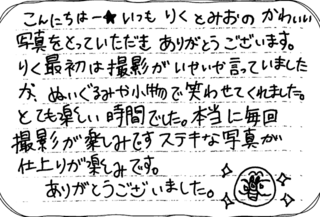 こんにちはー★いつも りくとみおの かわいい
写真をとっていただき ありがとうございます。
りく最初は撮影がいやいや言っていました
が、ぬいぐるみや小物で笑わせてくれました。
とても楽しい時間でした。本当に毎回
撮影が楽しみです ステキな写真が
仕上りが楽しみです。
ありがとうございました。